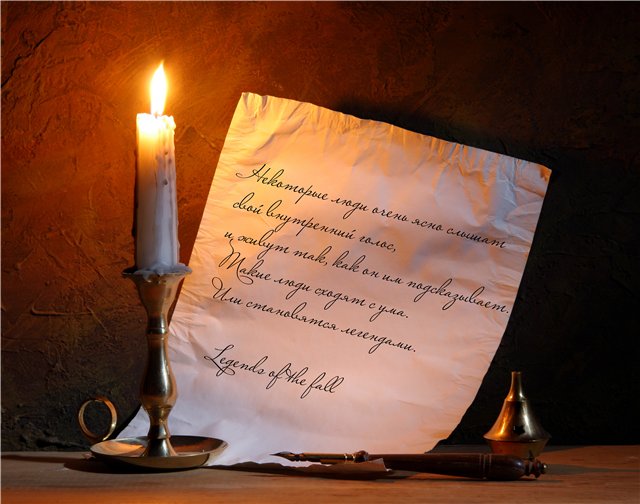 Некоторые люди очень ясно слышат
свой внутренний голос,
и живут так, как он им подсказывает.
Такие люди сходят с ума.
Или становятся легендами.
Legends of the fall